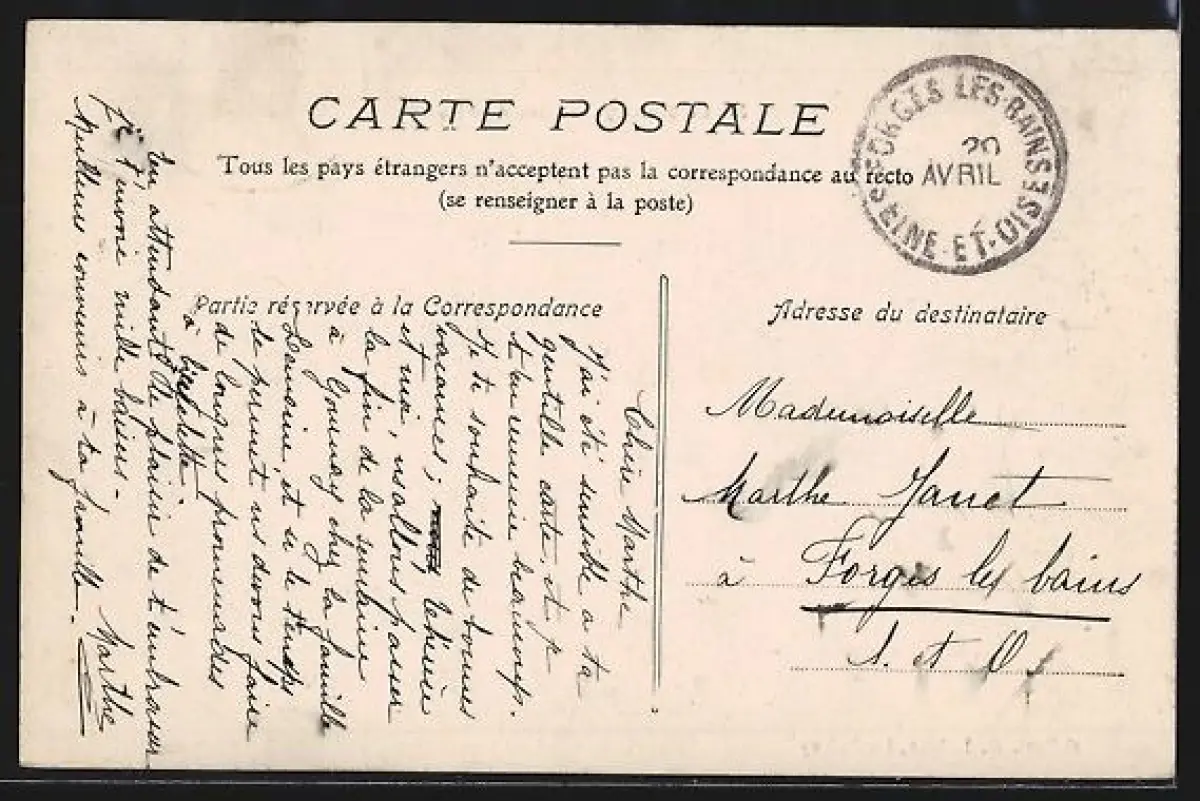 CARTE POSTALE
Tous les pays étrangers n'acceptent pas la correspondance au recto
(se renseigner à la poste)
FORGES LES-BAINS
20
AVRIL
SEINE-ET-OISE
Partie réservée à la Correspondance
Adresse du destinataire
Chère Marthe
J'ai été sensible a ta
gentille carte, et je
t'en remercie beaucoup.
Je te souhaite de bonnes
vacances;
et moi, ns allons passer
la fin de la semaine
à Gournay chez la famille
et si le temps
le permet ns devons faire
de longues promenades
à bicyclette
En attendant le plaisir de t'embrasser
Je t'envoie mille baisers.
Meilleurs souvenirs à ta famille.
Marthe
Mademoiselle
Marthe Janet
à Forges les bains
S. et O.